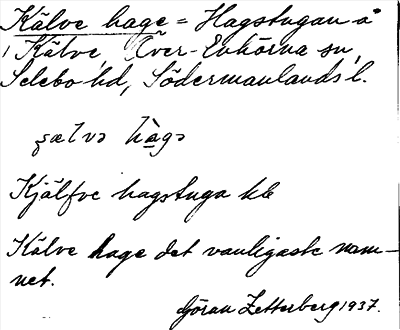 Kälve hage = Hagstugan å
Kälve, Över-Enhörna sn,
Selebo hd, Södermanlands l.
ɕælvə hàgə
Kjälfve hagstuga kb
Kälve hage det vanligaste nam-
net.
Göran Zetterberg 1937.